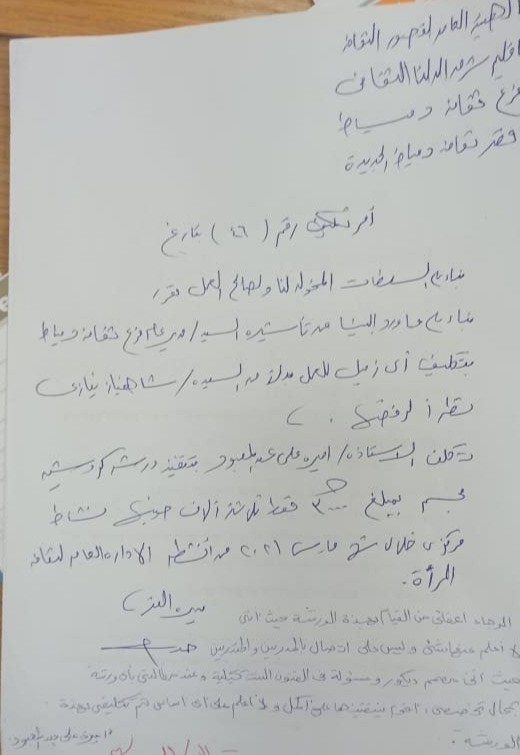 الهيئة العامة لقصور الثقافة
اقليم شرق الدلتا الثقافى
فرع ثقافة دمياط
قصر ثقافة دمياط الجديدة
أمر تكليف رقم ( ٤٦ ) بتاريخ
بناء على السلطات المخولة لنا ولصالح العمل تقرر
بناء على ما ورد الينا من تأشيرة السيد / مدير عام فرع ثقافة دمياط
بتكليف أى زميل للعمل بدلا من السيدة / شاهيناز نيازى
نظرا لرفضها .
تكلف الاستاذة / اميرة على عبد المعبود بتنفيذ ورشة كروشيه
مجسم بمبلغ ٣٠٠٠ فقط ثلاثة آلاف جنيها نشاط
مركزى خلال شهر مارس ٢٠٢١ من أنشطة الادارة العامة لثقافة
المرأة .
الرجاء اعفائى من القيام بهذه الورشة حيث اننى
لا أعلم عنها شئ وليس على اتصال بالمدرس والمتدربين
حيث أنى مصمم ديكور ومسئولة فى الفنون التشكيلية وعند مطالبتى بأى ورشة
بمجال تخصصى ، اقوم بتنفيذها على أكمل ولا أعلم على أى اساس تم تكليفى بهذة
الورشة .
اميرة على عبد المعبود